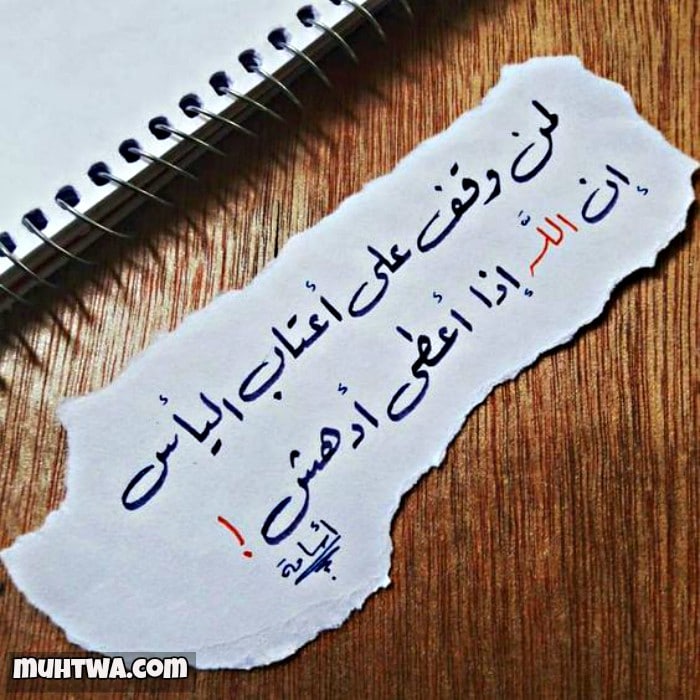 لمن وقف على أعتاب اليأس
إن اللَّه إذا أعطى أدهش !
muhtwa.com